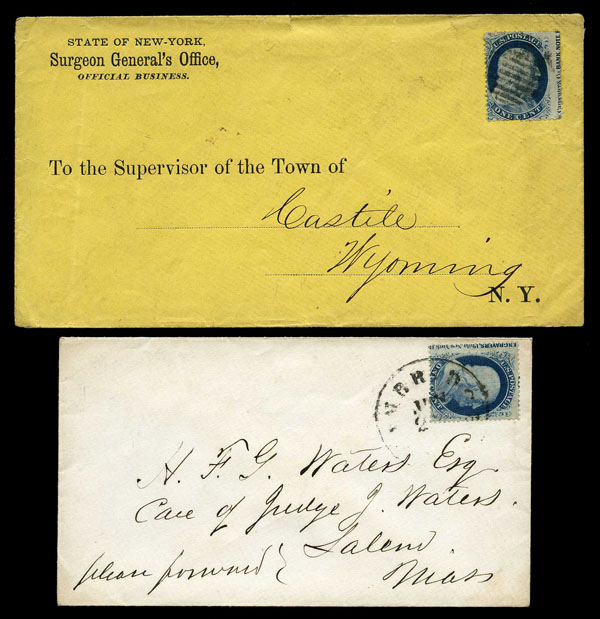 STATE OF NEW-YORK,
Surgeon General's Office,
OFFICIAL BUSINESS.
U.S. POSTAGE
ONE CENT
To the Supervisor of the Town of
Castile
Wyoming
N. Y.
U.S. POSTAGE
H. F. G. Waters Esq.
Care of Judge J. Waters.
Salem.
please forward
Mass